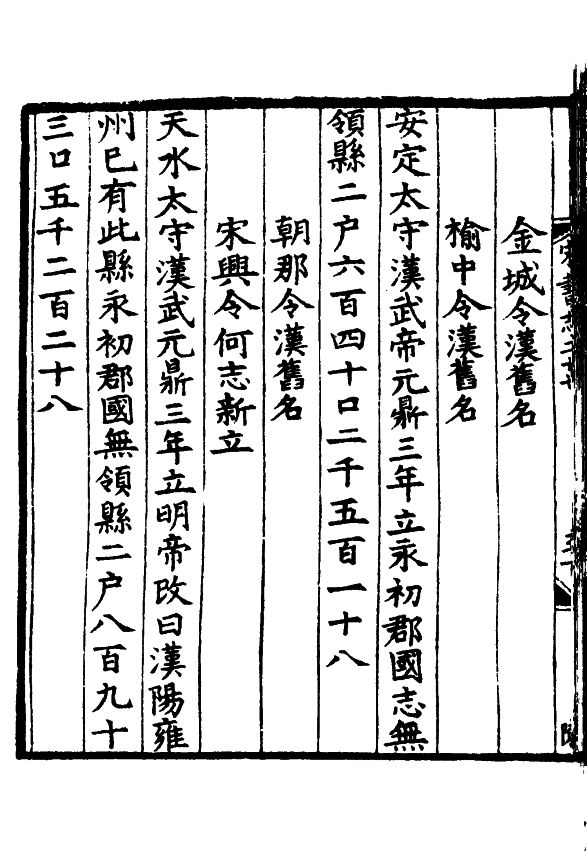 金城令漢舊名
榆中令漢舊名
安定太守漢武帝元鼎三年立永初郡國志無
領縣二户六百四十口二千五百一十八
朝那令漢舊名
宋興令何志新立
天水太守漢武元鼎三年立明帝改曰漢陽雍
州已有此縣永初郡國無領縣二户八百九十
三口五千二百二十八